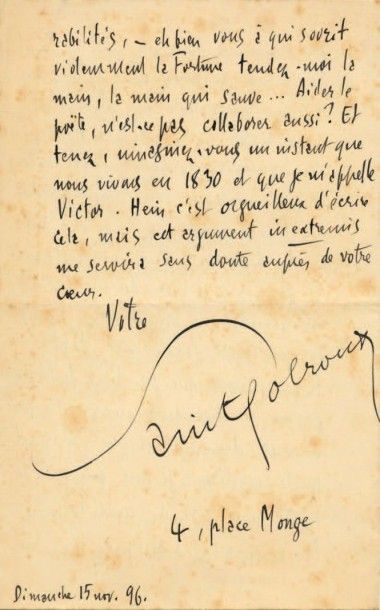 rabilités, — eh bien vous à qui sourit
violemment la Fortune tendez-moi la
main, la main qui sauve... Aider le
poëte, n'est-ce pas collaborer aussi? Et
tenez, imaginez-vous un instant que
nous vivons en 1830 et que je m'appelle
Victor. Hein c'est orgueilleux d'écrire
cela, mais cet argument in extremis
me servira sans doute auprès de votre
cœur.
Votre
Saint-Pol-Roux
4, place Monge
Dimanche 15 nov. 96.